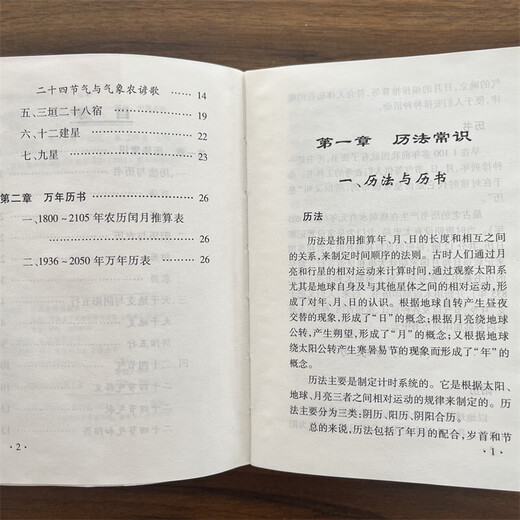 二十四节气与气象农谚歌 14
五、三垣二十八宿 19
六、十二建星 22
七、九星 23
第二章 万年历书 26
一、1800～2105年农历闰月推算表
26
二、1936～2050年万年历表 26
·2·
第一章 历法常识
一、历法与历书
历法
历法是指用推算年、月、日的长度和相互之间
的关系,来制定时间顺序的法则。古时人们通过月
亮和行星的相对运动来计算时间,通过观察太阳系
尤其是地球自身及与其他星体之间的相对运动,形
成了对年、月、日的认识。根据地球自转产生昼夜
交替的现象,形成了“日”的概念;根据月亮绕地球
公转,产生朔望,形成了“月”的概念;又根据地球
绕太阳公转产生寒暑易节的现象而形成了“年”的
概念。
历法主要是制定计时系统的。它是根据太阳、
地球、月亮三者之间相对运动的规律来制定的。历
法主要分为三类:阴历、阳历、阴阳合历。
总的来说,历法包括了年月的配合,岁首和节
·1·